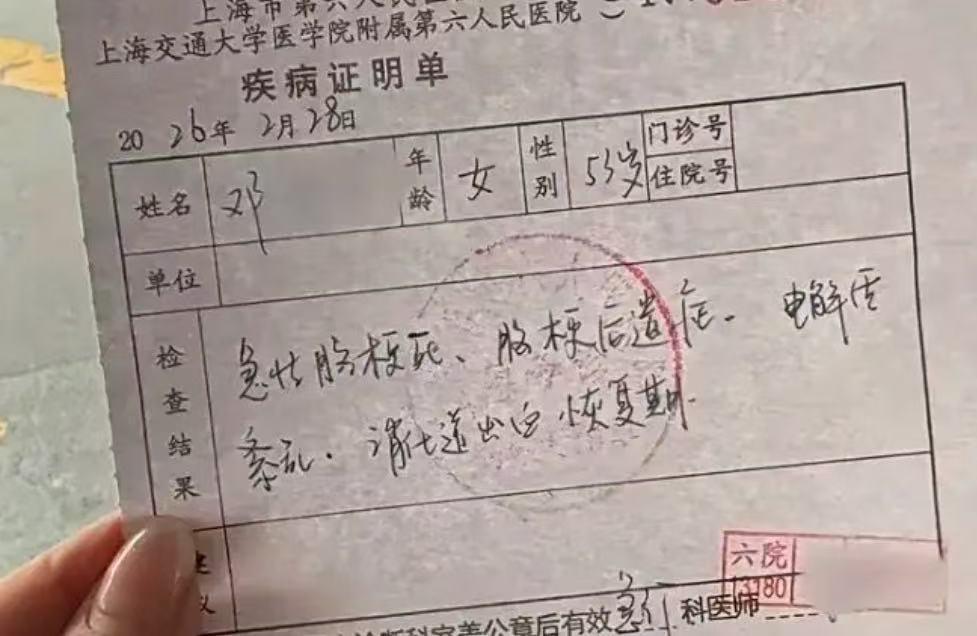 上海市第六人民医
上海交通大学医学院附属第六人民医院
疾病证明单
2026年2月28日
姓名 邓 年龄 女 性别 53岁 门诊号
住院号
单位
检查结果 急性脑梗死、脑梗后遗症、电解质
紊乱、消化道出血恢复期
六院
13180
断科完善公章后有效 急 科医师